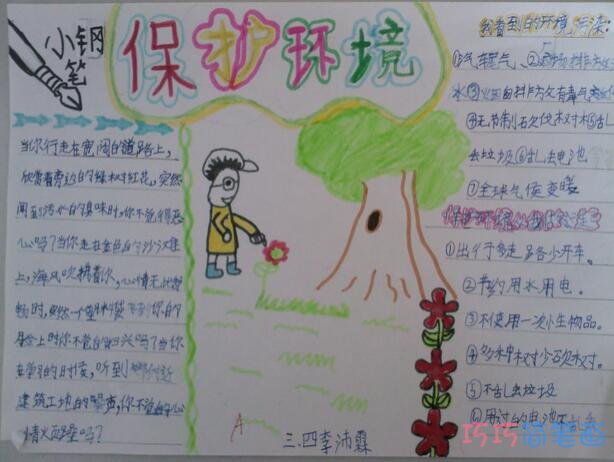 小钢
笔
保护环境
当你行走在宽阔的道路上,
欣赏着旁边的绿树红花,突然
闻到污水的臭味时,你不觉得恶
心吗?当你走在金色的沙滩
上,海风吹拂着你,心情无比舒
畅时,突然一个塑料袋飞到你的
身上时你不觉的扫兴吗?当你
在学习的时候,听到附近
建筑工地的噪声,你不觉的心
情烦躁吗?
我看到的环境污染:
①汽车尾气、②
水③火 的排放有毒气
④无节制砍伐树木⑤乱
丢垃圾⑥乱丢电池
⑦全球气候变暖
保护环境从我做起
①出行多走路少开车。
②节约用水用电。
③不使用一次小生物品。
④多种树少砍树。
⑤不乱丢垃圾
⑥用过的电池不
A
三.四李沛霖
巧巧简笔画